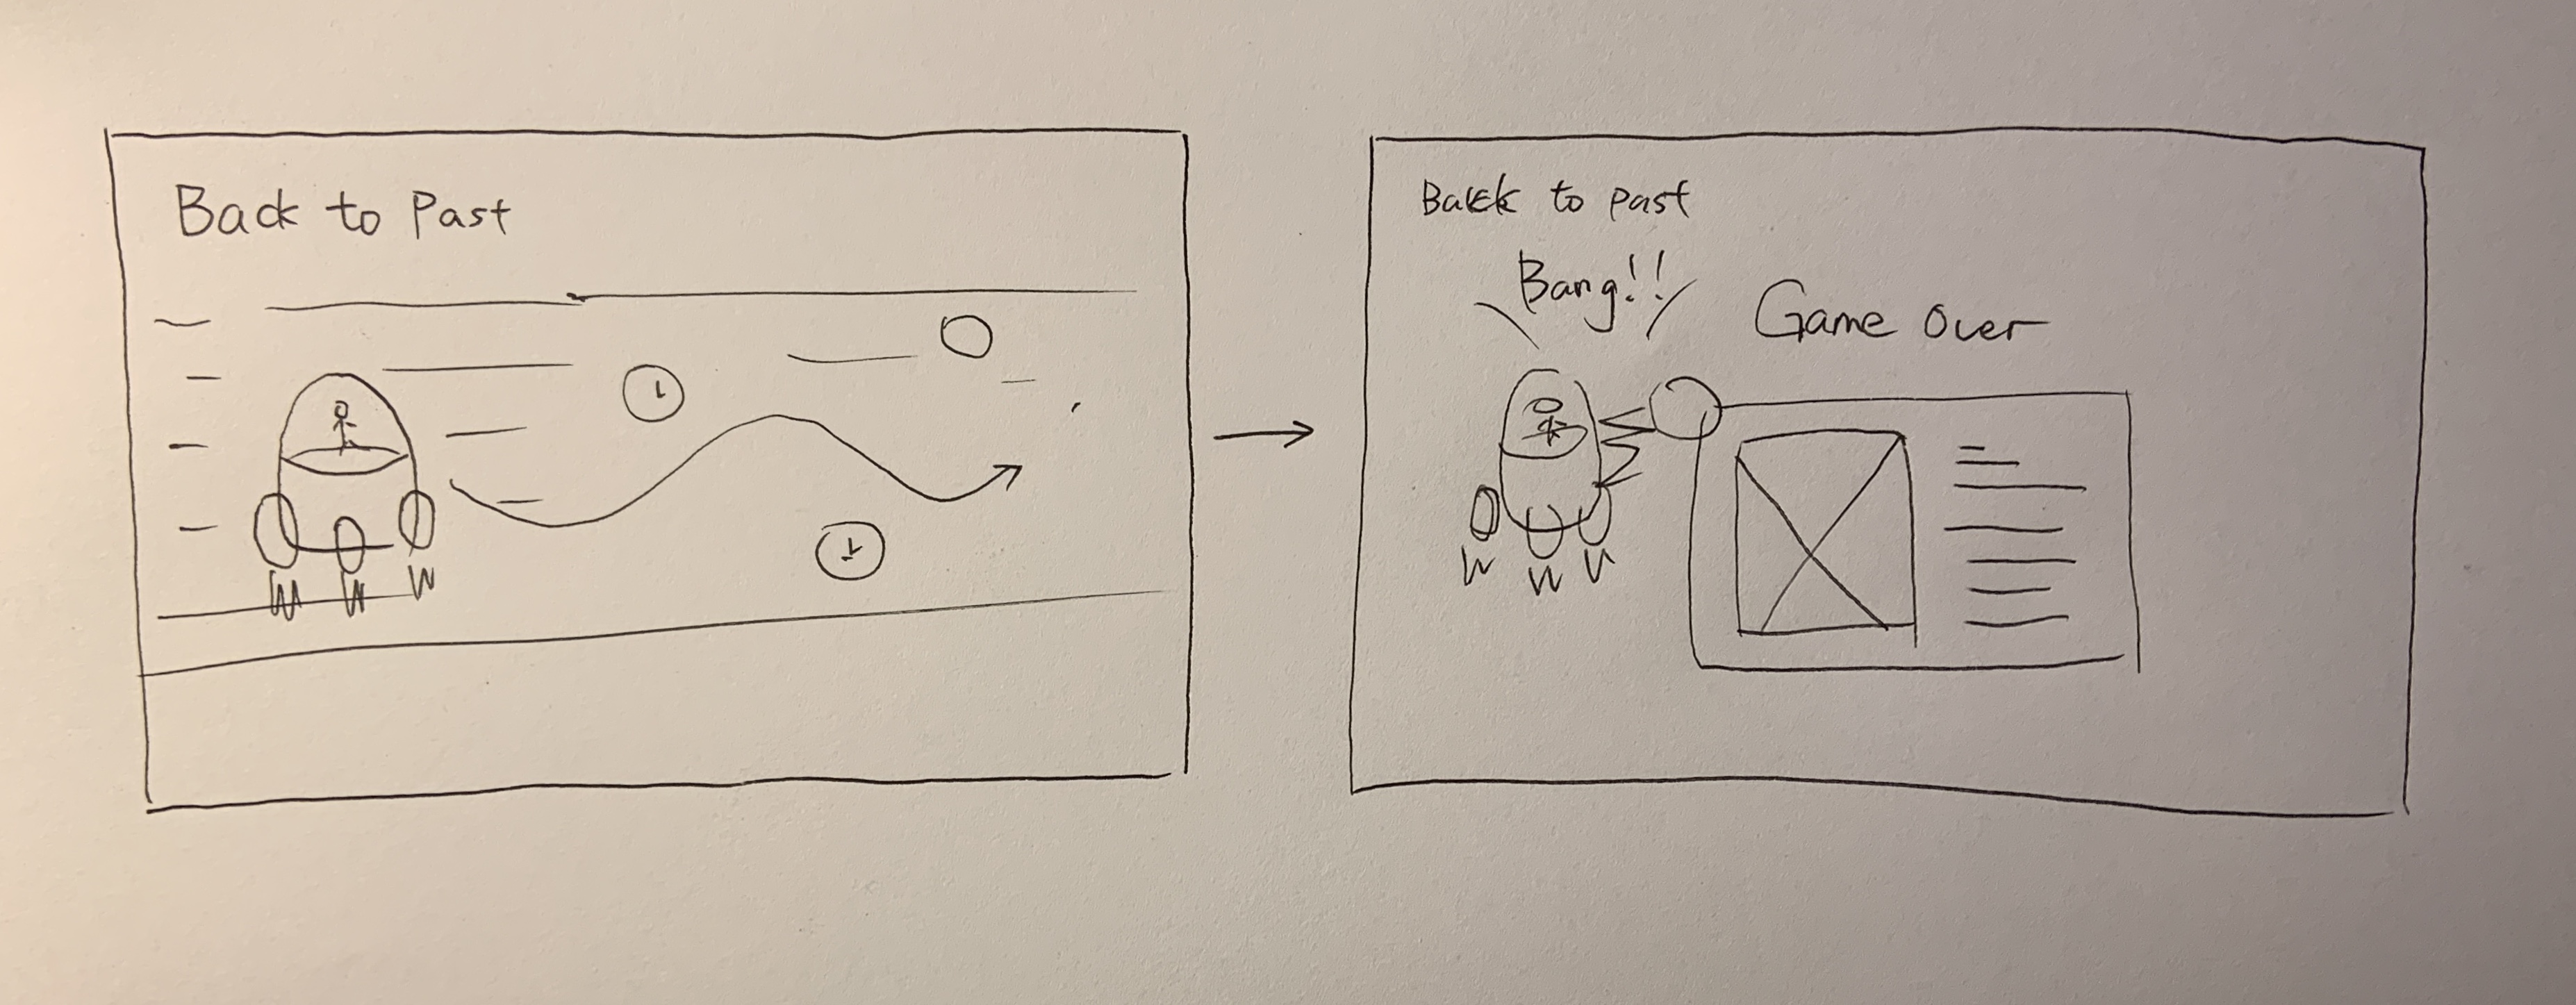 Back to Past
Back to past
Bang!!
Game Over